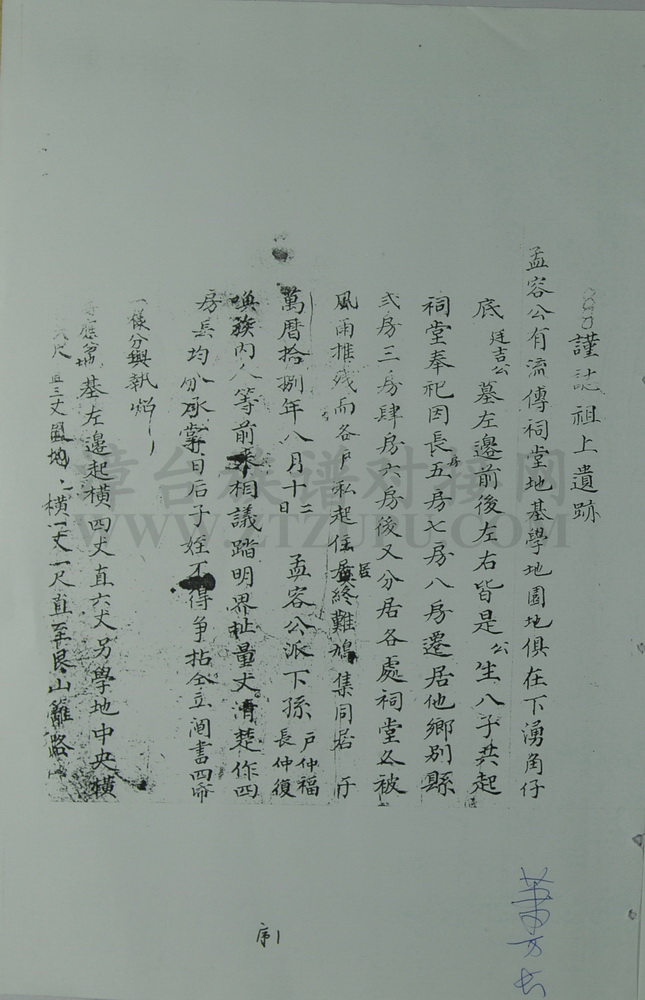 謹誌祖上遺跡
孟容公有流傳祠堂地基學地園地俱在下湧角仔
底廷吉公墓左邊前後左右皆是公生八子共起
祠堂奉祀因長五房七房八房遷居他鄉別縣
弍房三房肆房六房後又分居各處祠堂久被
風雨摧残而各户私起住居終難鳩集同居于
萬曆拾捌年八月十二日 孟容公派下孫户仲福長仲復
喚蔟內人等前來相議踏明界址量丈清楚作四
房長均分承掌日后子姪不得争拈仝立阄書四帋
一樣分與執炤
基左邊起横四丈直六丈另學地中央横
尺直三丈園地横一丈一尺直至艮山籬路
序1
章台族谱对接网
WWW.ZTZUPU.COM